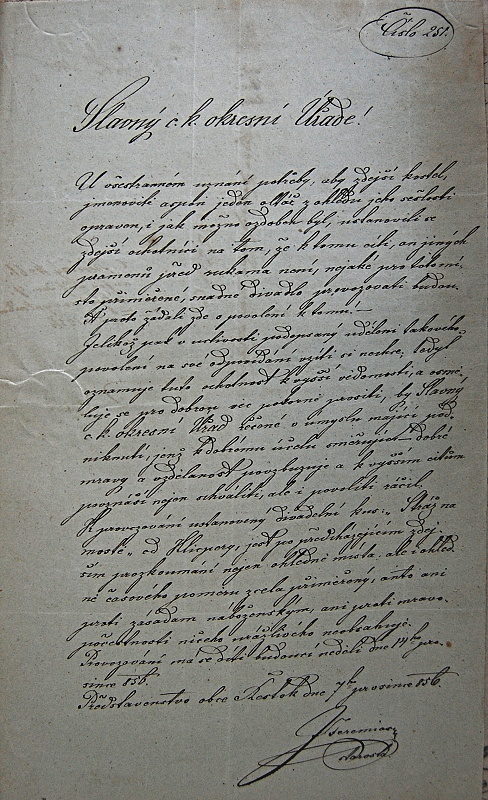 Číslo 251.
Slavný c. k. okresní Úřade!
U všestranném uznání potřeby, aby zdejší kostel,
jmenovitě aspoň jeden oltář z ohledu jeho sešlosti
opraven, i jak možno ozdoben byl, ustanovili se
zdejší ochotníci na tom, že k tomu cíli, an jiných
pramenů před rukama není, nejaké pro toto mí-
sto přiměřené, snadné divadlo provozovati budou.
A proto žádali zde o povolení k tomu.
Jelikož pak v uctivosti podepsaný udělení takového
povolení na své odpovídání vzíti si nechce, tedy
oznamuje tuto ochotnost k vyšší vědomosti, a osmě-
luje se pro dobrou věc pokorně prositi, by Slavný
c. k. okresní Úřad řečené v úmyslu mající pod-
niknutí, jenž k dobrému účelu směřujíc dobré
mravy a vzdělanost povzbuzuje a k vyšším citům
poznáší nejen schváliti, ale i povoliti ráčil.
K provozování ustanovený divadelní kus: „Stráž na
mostě" od Klicpery, jest po předcházejícím zdej-
ším prozkoumání nejen ohledně místa, ale i ohled-
ně časového poměru zcela přiměřený, anto ani
proti zásadám náboženským, ani proti mravo-
počestnosti ničeho urážlivého neobsahuje.
Provozování má se díti budoucí neděli dne 14ho pro-
since 856.
Představenstvo obce dne 7ho prosince 856.
Jeremias
starosta